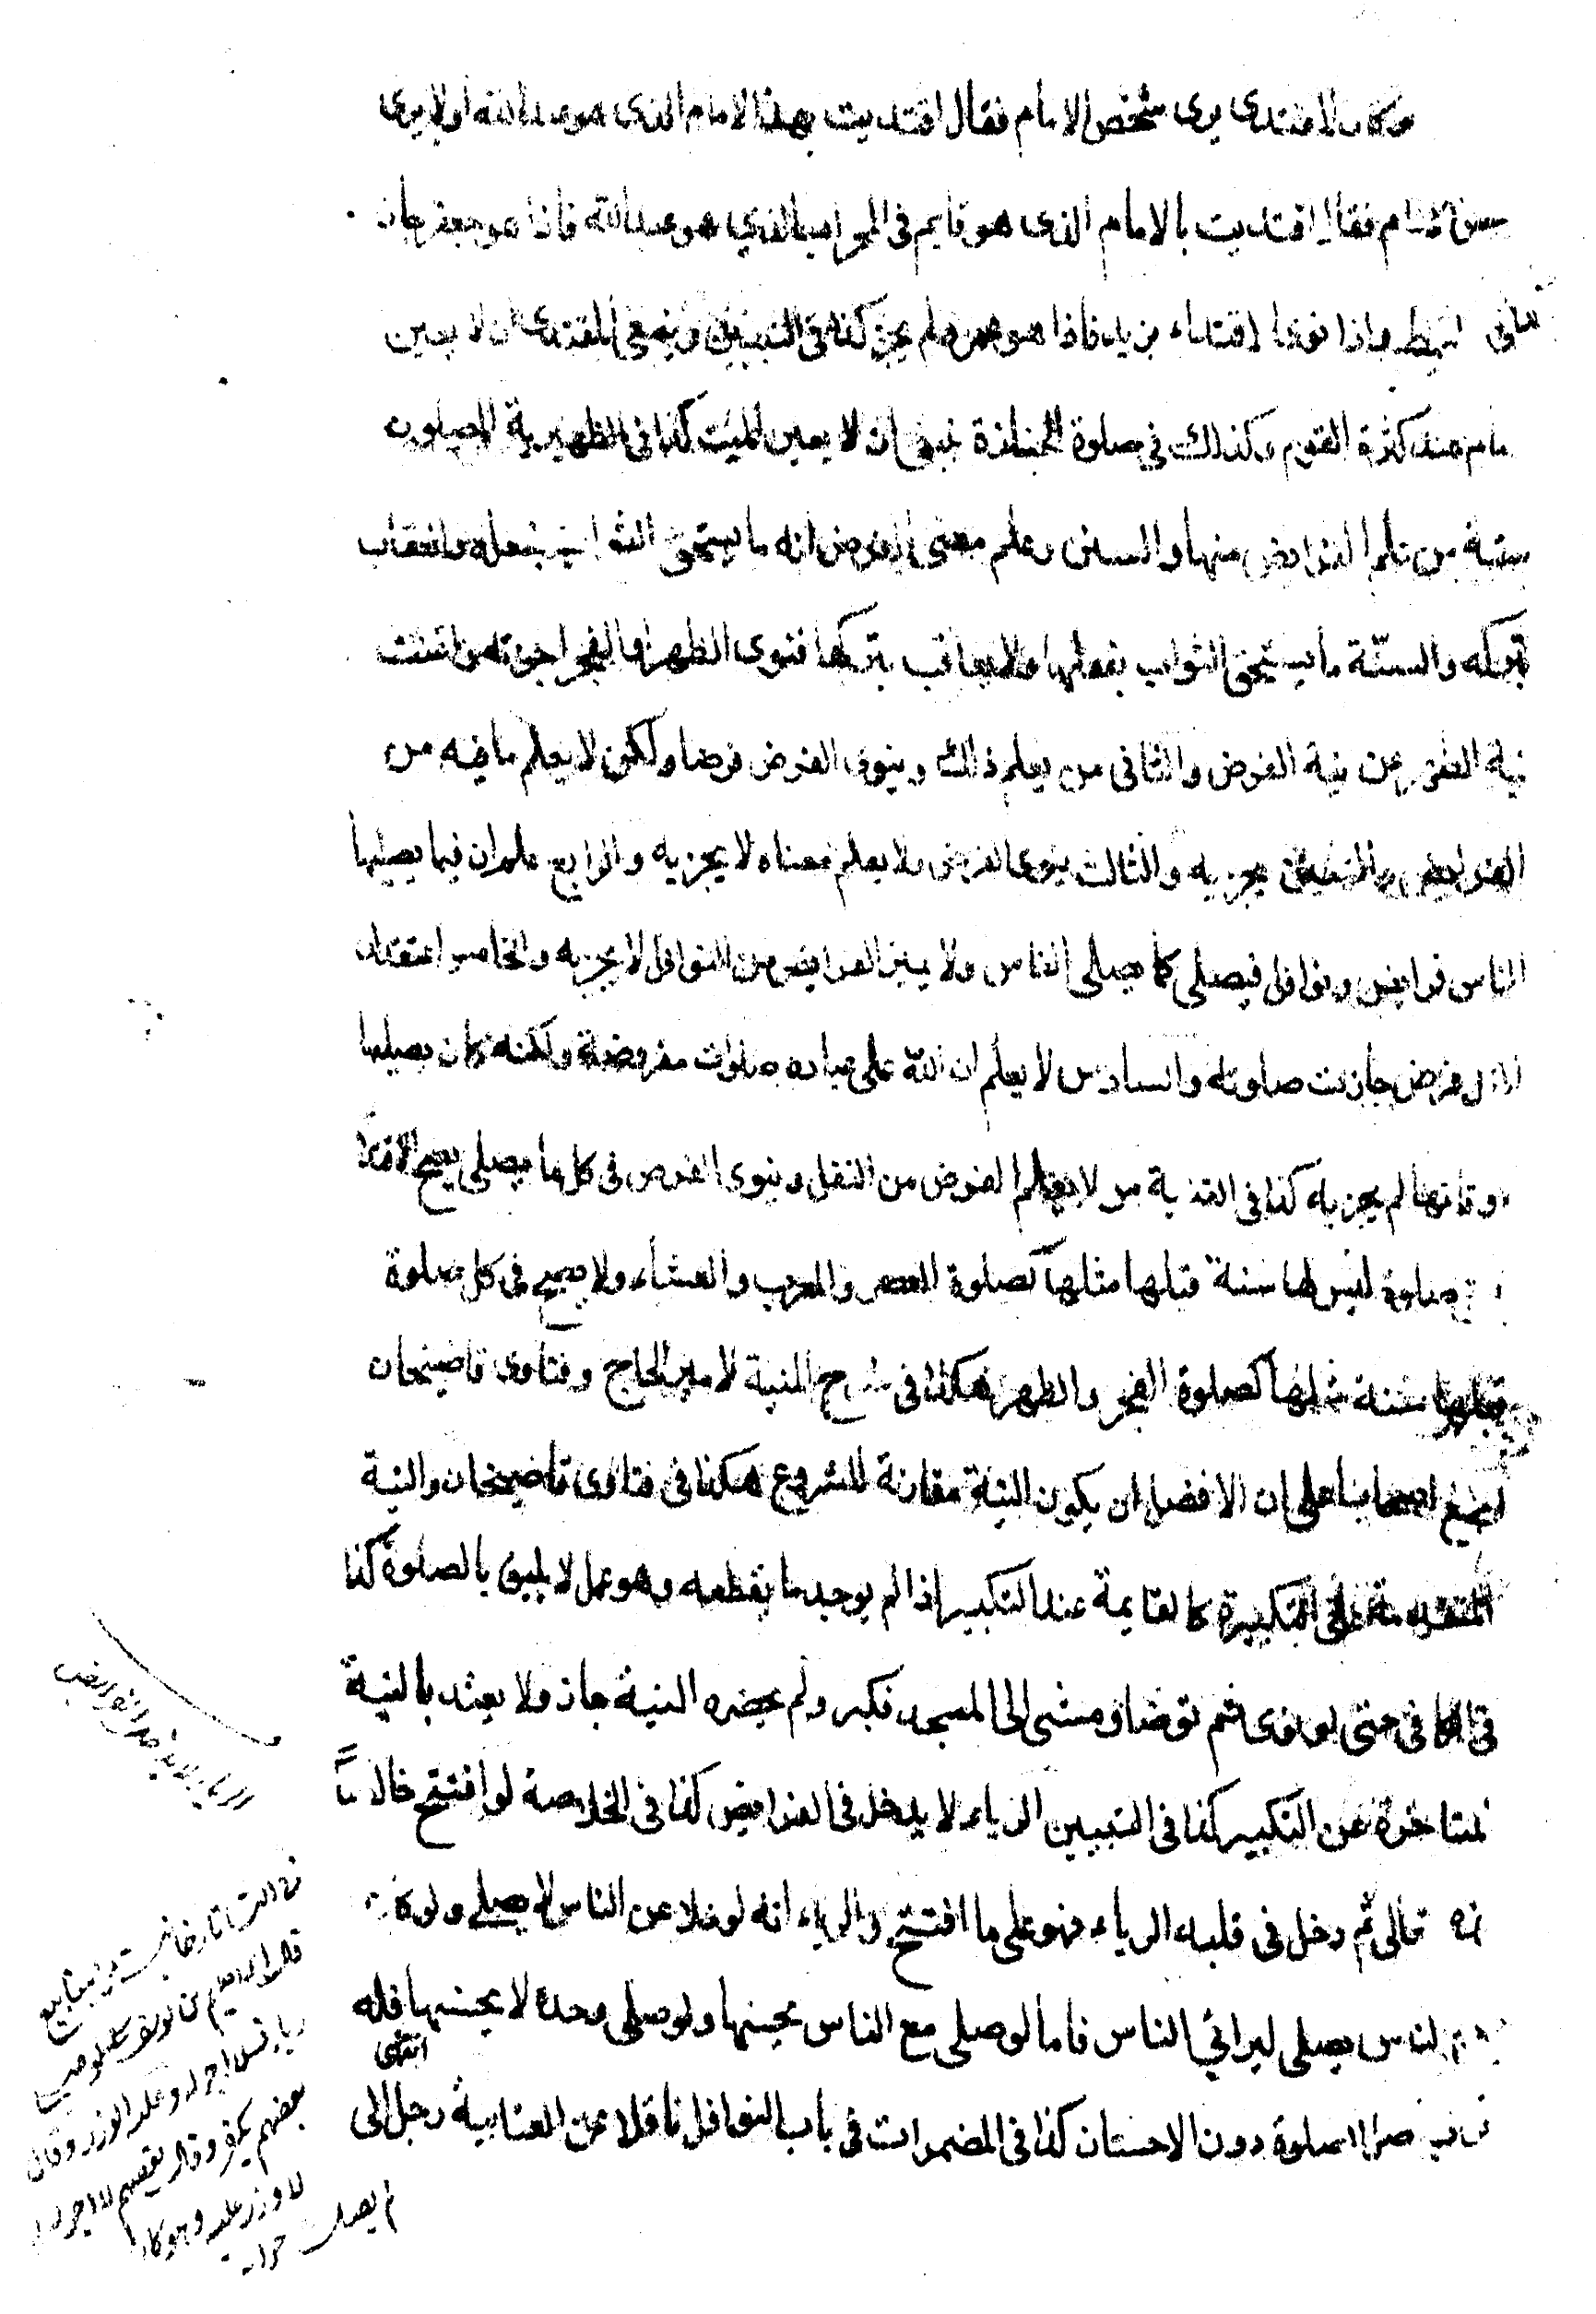 وكان المقتدى يرى شخص الامام فقال اقتديت بهذا الامام الذى هو عبد الله او لا يرى
شخص الامام فقال اقتديت بالامام الذى هو قايم فى المحراب الذي هو عبد الله فاذا هو جعفر جاز
واذا نوى الاقتداء بزيد فاذا هو عمرو لم يجز كذا فى التبيين وينبغى للمقتدى ان لا يعين
مام عند كثرة القوم وكذلك في صلوة الجنازة ينبغى ان لا يعين الميت كذا فى الظهيرية المصلون
ستة من علم الفرايض منها والسنن وعلم معنى الفرض انه ما يستحق الثواب بفعله والعقاب
بتركه والسنّة ما يستحق الثواب بفعلها ولا يعاقب بتركها فنوى الظهر او الفجر اجزته واغنت
نية الظهر عن نية الفرض والثانى من يعلم ذلك وينوى الفرض فرضا ولكن لا يعلم ما فيه من
الفرايض والسنن يجزيه والثالث ينوى الفرض ولا يعلم معناه لا يجزيه والرابع علم ان فيما يصليها
الناس فرايض ونوافل فيصلى كما يصلى الناس ولا يميز الفرايض من النوافل لا يجزيه والخامس اعتقد
ان الكل فرض جازت صلوته والسادس لا يعلم ان الله على عباده صلوات مفروضة ولكنه كان يصليها
او قاتها لم يجزيه كذا فى القنية من لا يعلم الفرض من النفل وينوى الفرض فى كل ما يصلى يصح الاقتدا
صلوة ليس لها سنة قبلها مثلها كصلوة العصر والمغرب والعشاء ولا يصح فى كل صلوة
قبلها سنة مثلها كصلوة الفجر والظهر هكذا فى شرح المنية لامير الحاج وفتاوى قاضيخان
اجمع اصحابنا على ان الافضل ان يكون النية مقارنة للشروع هكذا فى فتاوى قاضيخان والنية
المتقدمة على التكبيرة كالقايمة عند التكبير اذا لم يوجد ما يقطعه وهو عمل لا يليق بالصلوة كذا
فى الكافى حتى لو نوى ثم توضا ومشى الى المسجد فكبر ولم يحضره النية جاز ولا يعتد بالنية
المتاخرة عن التكبير كذا فى التبيين الرياء لا يدخل فى الفرايض كذا فى الخلاصة لو افتتح خالصًا
لله تعالى ثم دخل فى قلبه الرياء فهو على ما افتتح والرياء انه لو خلا عن الناس لا يصلى ولو كان
مع الناس يصلى ليرائي الناس فاما لو صلى مع الناس يحسنها ولو صلى وحده لا يحسنها فله
ثواب اصل الصلوة دون الاحسان كذا فى المضمرات فى باب النوافل ناقلا عن العتابية رجل الى
انتهى
الرياء لا يدخل الفرايض
فى التتارخانية من ينابيع
قال ابراهيم بن يوسف لو صلى
رياء فلا اجر له وعليه الوزر وقال
بعضهم يكفر وقال بعضهم لا اجر له
لا وزر عليه وهو كان
لم يصل